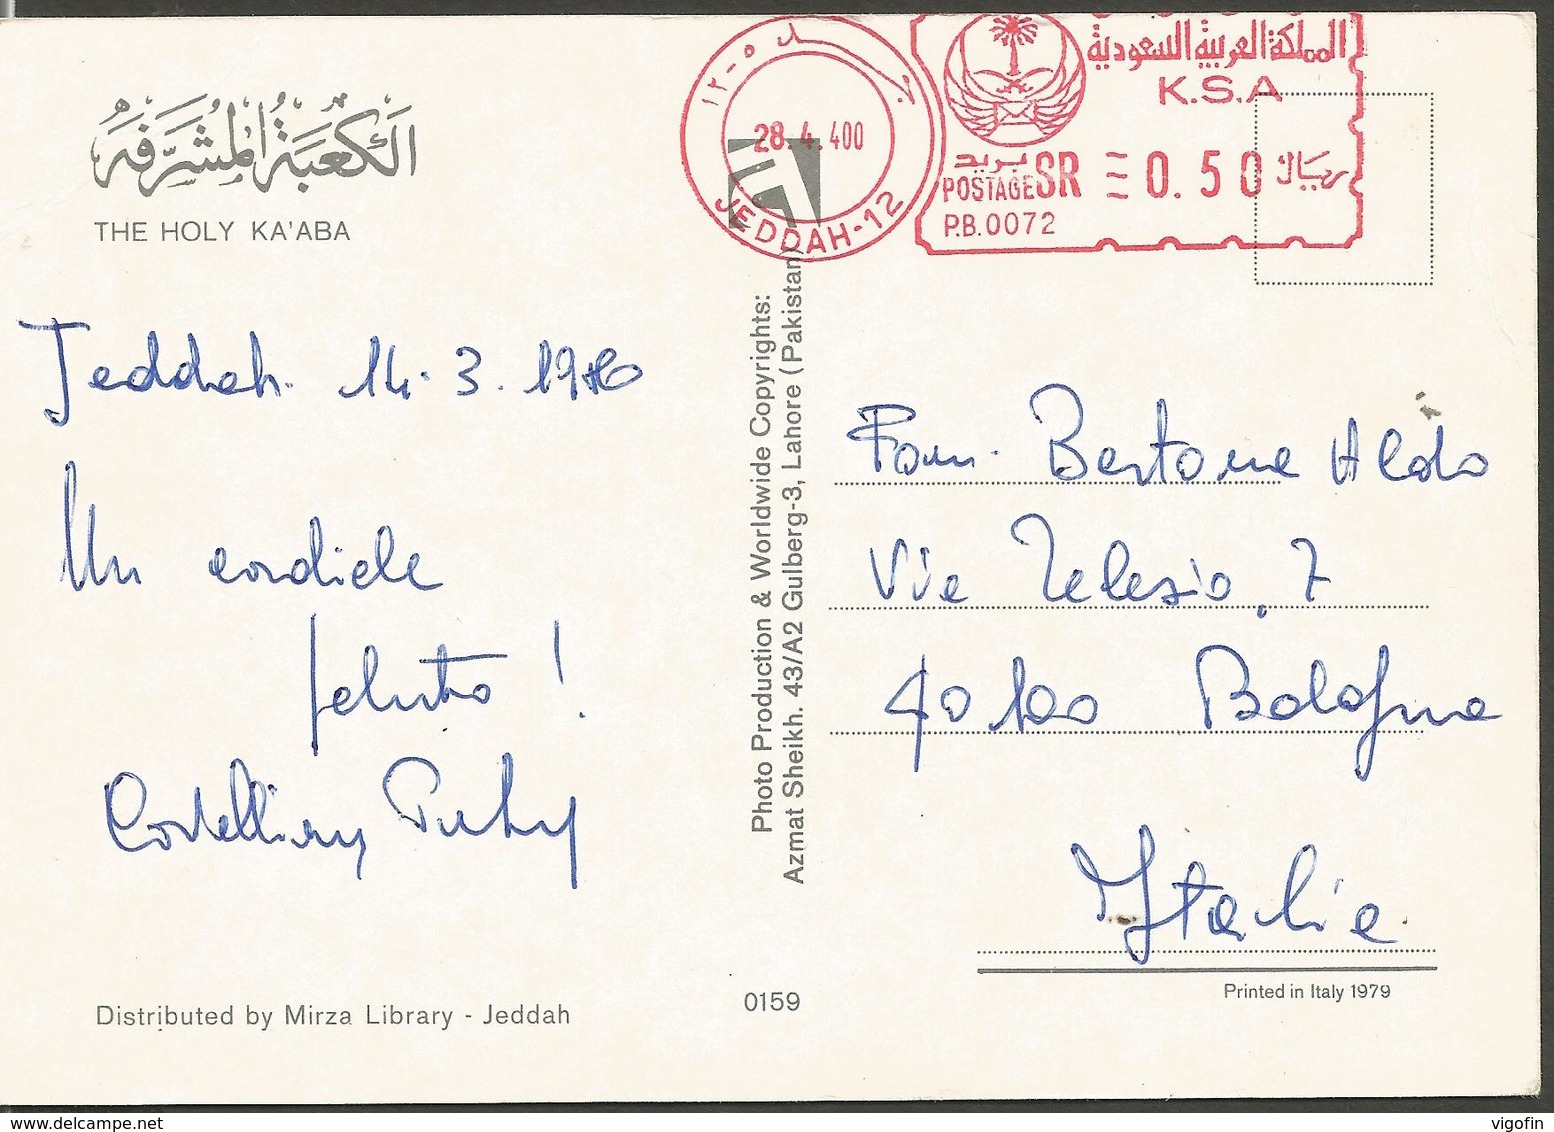 الكعبة المشرفة
THE HOLY KA'ABA
Jeddah. 14. 3. 1980
Un cordiale
saluto!
جدة ١٢-٥
28.4.400
JEDDAH-12
المملكة العربية السعودية
K.S.A
بريد
POSTAGE SR 0.50 ريال
P.B.0072
Photo Production & Worldwide Copyrights:
Azmat Sheikh. 43/A2 Gulberg-3, Lahore (Pakistan)
Fam. Bertone Aldo
Via Telesio, 7
40100 Bologna
Italia
Printed in Italy 1979
Distributed by Mirza Library - Jeddah
0159
vigofin